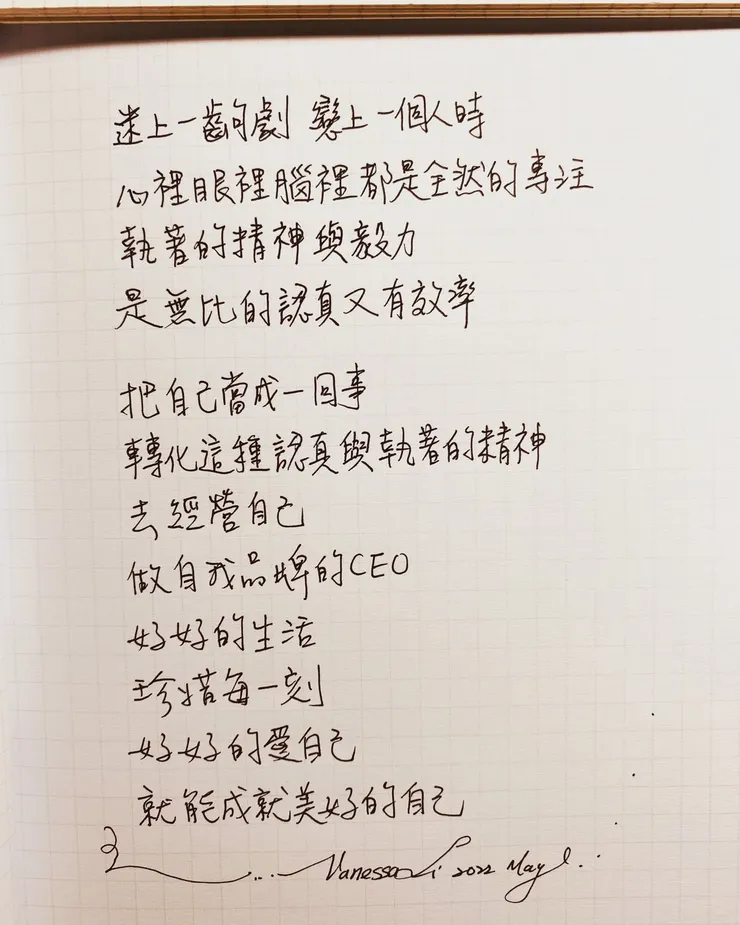 迷上一齣劇 戀上一個人時
心裡眼裡腦裡都是全然的專注
執著的精神與毅力
是無比的認真又有效率
把自己當成一回事
轉化這種認真與執著的精神
去經營自己
做自我品牌的CEO
好好的生活
珍惜每一刻
好好的愛自己
就能成就美好的自己
... Vanessa Li 2022 May